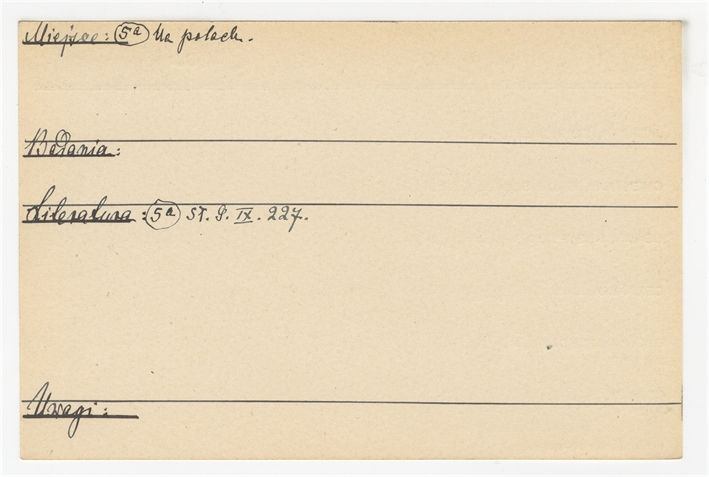 Miejsce: 5a Na polach.
Badania:
Literatura: 5a St. G. IX. 227.
Uwagi: